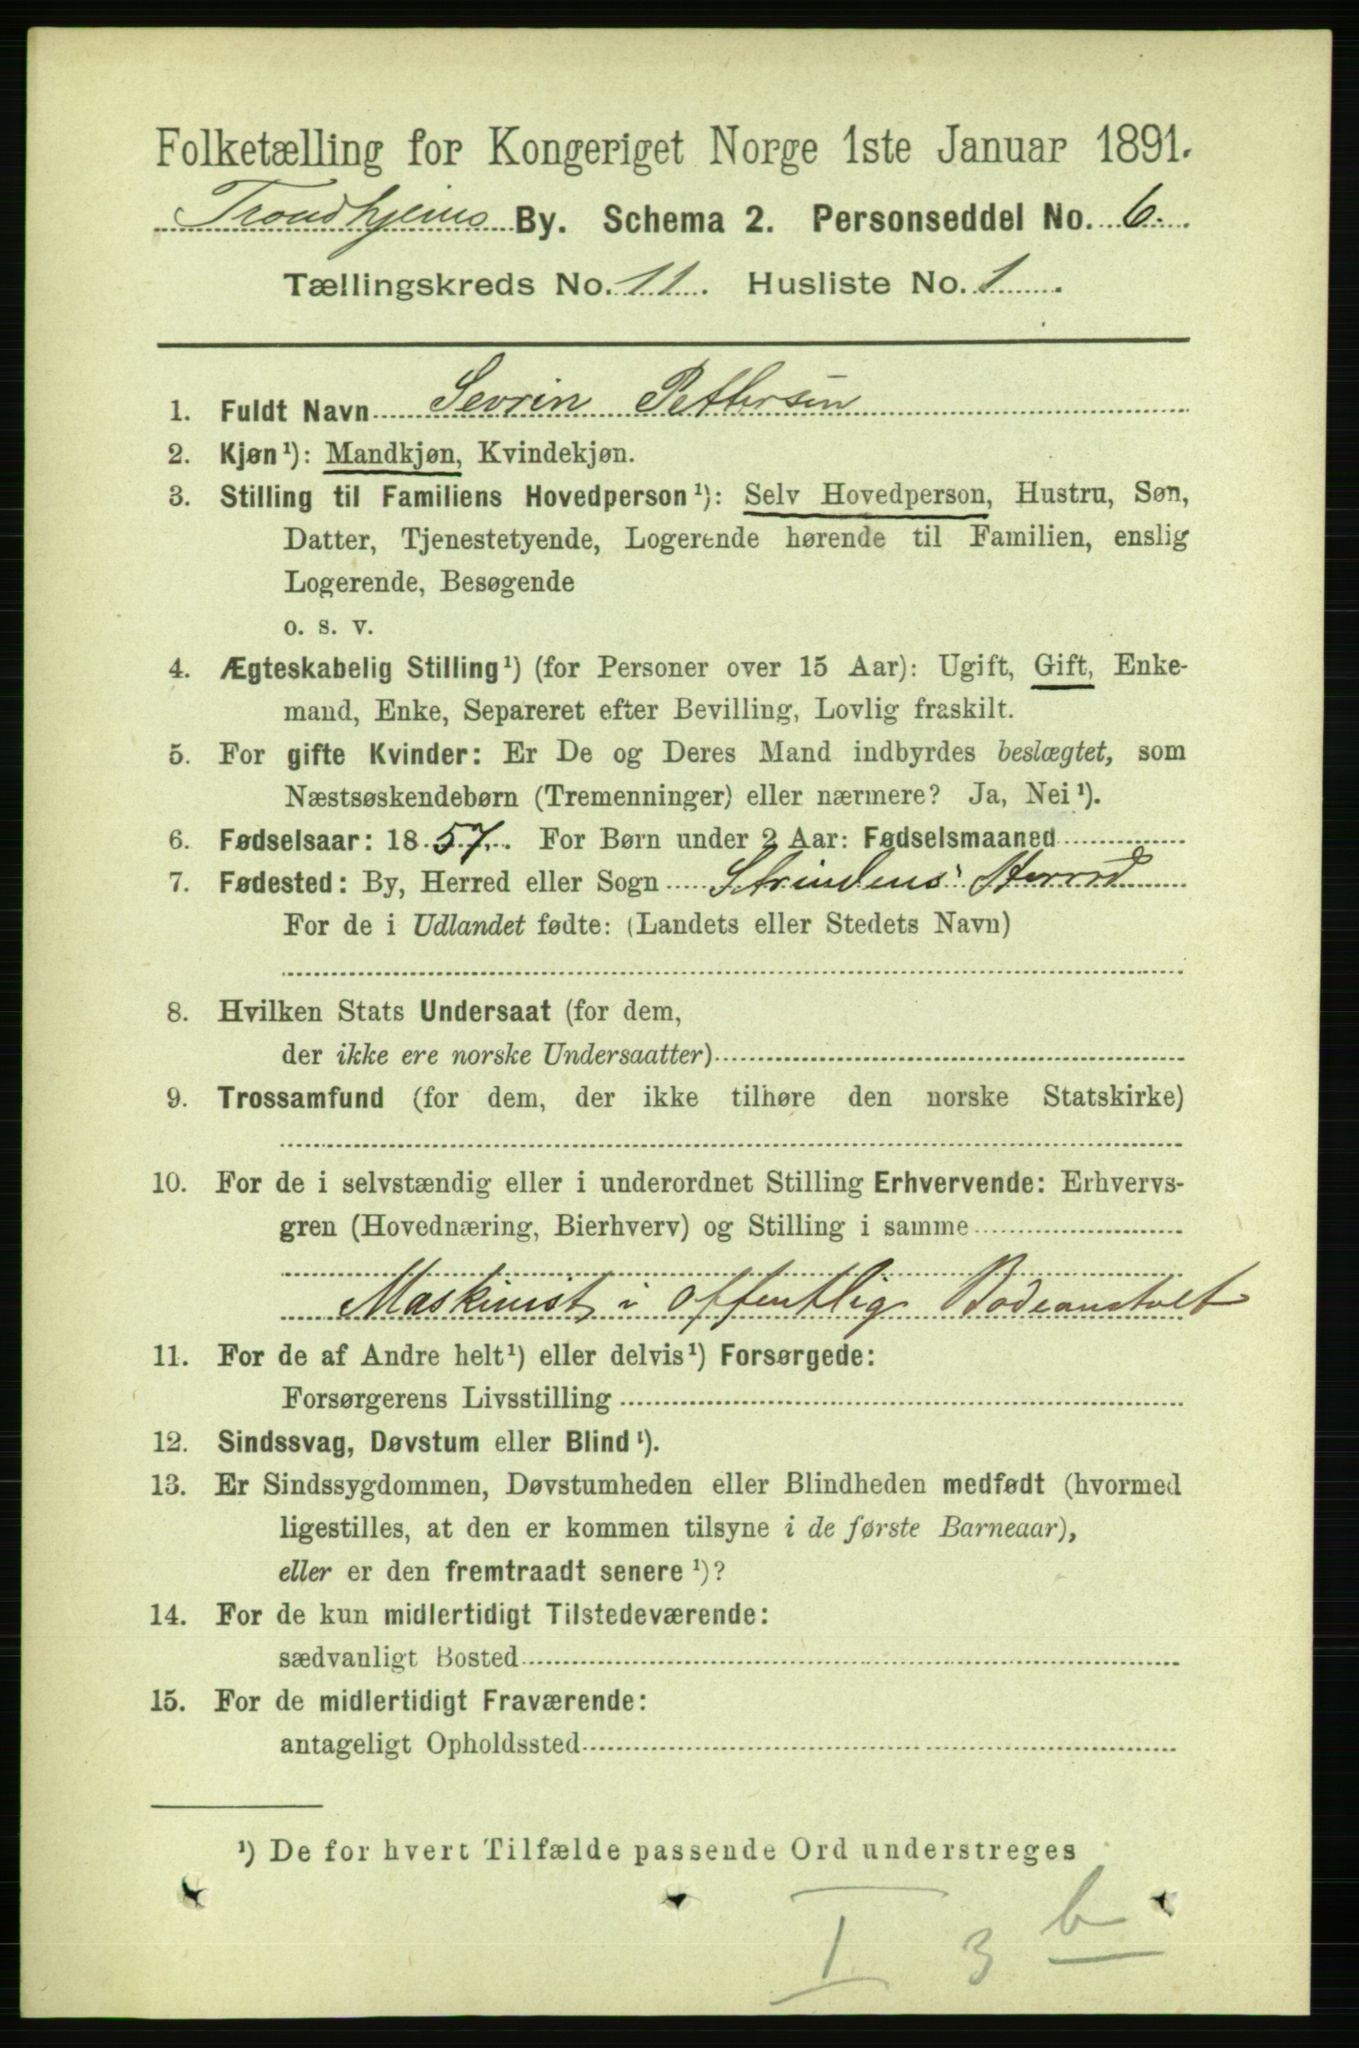 Folketælling for Kongeriget Norge 1ste Januar 1891.
Trondhjems By. Schema 2. Personseddel No. 6.
Tællingskreds No. 11. Husliste No. 1.
1. Fuldt Navn Sevrin Pettersen
2. Kjøn¹): Mandkjøn, Kvindekjøn.
3. Stilling til Familiens Hovedperson¹): Selv Hovedperson, Hustru, Søn,
Datter, Tjenestetyende, Logerende hørende til Familien, enslig
Logerende, Besøgende
o. s. v.
4. Ægteskabelig Stilling¹) (for Personer over 15 Aar): Ugift, Gift, Enke-
mand, Enke, Separeret efter Bevilling, Lovlig fraskilt.
5. For gifte Kvinder: Er De og Deres Mand indbyrdes beslægtet, som
Næstsøskendebørn (Tremenninger) eller nærmere? Ja, Nei¹).
6. Fødselsaar: 1857. For Børn under 2 Aar: Fødselsmaaned
7. Fødested: By, Herred eller Sogn Strindens Herred
For de i Udlandet fødte: (Landets eller Stedets Navn)
8. Hvilken Stats Undersaat (for dem,
der ikke ere norske Undersaatter)
9. Trossamfund (for dem, der ikke tilhøre den norske Statskirke)
10. For de i selvstændig eller i underordnet Stilling Erhvervende: Erhvervs-
gren (Hovednæring, Bierhverv) og Stilling i samme
Maskinist i offentlig Badeanstalt
11. For de af Andre helt¹) eller delvis¹) Forsørgede:
Forsørgerens Livsstilling
12. Sindssvag, Døvstum eller Blind¹).
13. Er Sindssygdommen, Døvstumheden eller Blindheden medfødt (hvormed
ligestilles, at den er kommen tilsyne i de første Barneaar),
eller er den fremtraadt senere¹)?
14. For de kun midlertidigt Tilstedeværende:
sædvanligt Bosted
15. For de midlertidigt Fraværende:
antageligt Opholdssted
¹) De for hvert Tilfælde passende Ord understreges
I 3 b